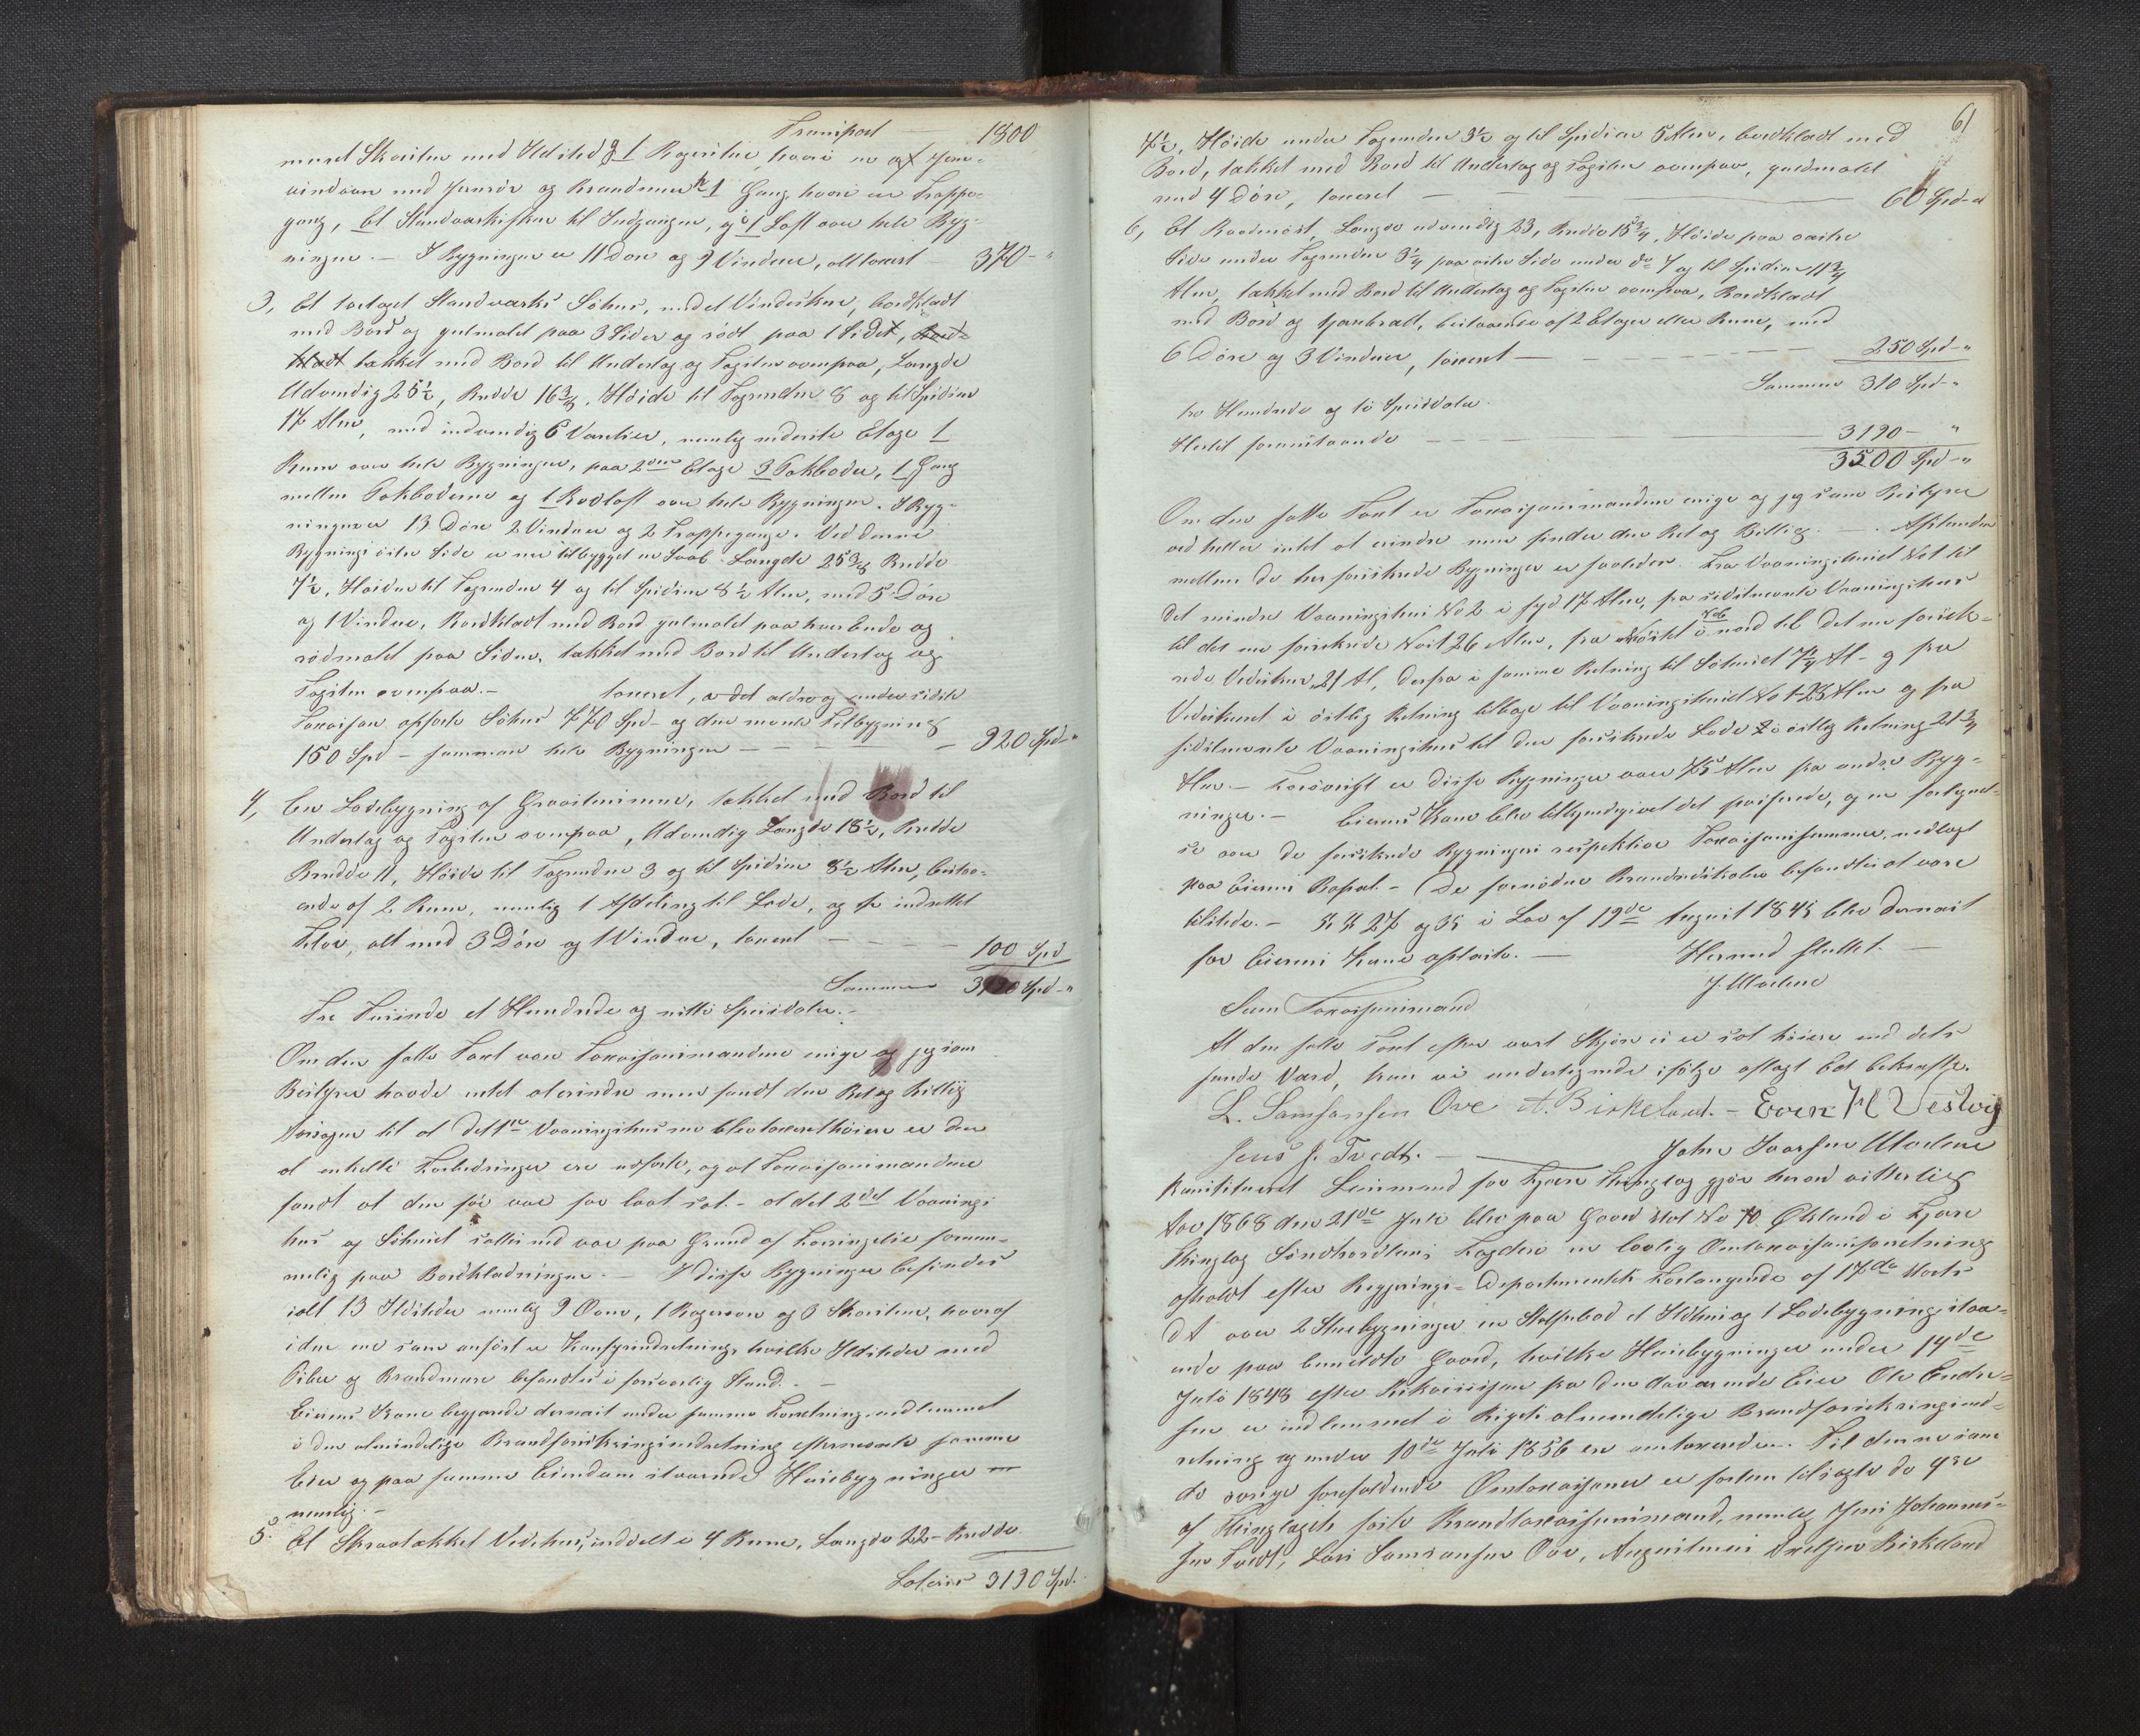 Transport — 1800
muret Skorsten med Ildsted & 1 Rogeritue hvori er
vindovn med Jernrör og Brandmuur 1 Gang, hvori en Trappe-
gang, et til Indgangen, og 1 Loft over hele Byg-
ningen. — I Bygningen er 11 Döre og 9 Vinduer, alt taxeret — 370 - "
3, Et toetaget Standværks Söhus, med et Vindskur, bordklædt
med Bord og gulmalet paa 3 Sider og rödt paa 1 Side, bord-
klædt tækket med Bord til Undertag og Tagsten ovenpaa, Længde
Udvendig 25½, Bredde 16¾, Höide til Tagrenden 8 og til Spidsen
17 Alen, med indvendig 6 Værelser, nemlig nederste Etage 1
Rum over hele Bygningen, paa 2den Etage 3 Pakboder, 1 Gang
mellem Pakboderne og 1 Rooloft over hele Bygningen. I Byg-
ningen er 13 Döre 2 Vinduer og 2 Trappegange. Ved denne
Bygnings östre Side er nu tilbygget en Sval. Længde 25⅜ Bredde
7½, Höiden til Tagrenden 4 og til Spidsen 8½ Alen, med 5 Döre
og 1 Vindue, Bordklædt med Bord gulmalet paa hver Ende og
rödmalet paa Siden, tækket med Bord til Undertag og
Tagsten ovenpaa. — taxeret, det ældre og under sidste
Taxasjon opförte Söhus 770 Spd - og den nævnte Tilbygning
150 Spd - sammen hele Bygningen — 920 Spd - "
4, En Ladebygning af Graastensmur, tækket med Bord til
Undertag og Tagsten ovenpaa, Udvendig Længde 18½, Bredde
Bredde 11, Höide til Tagrenden 3 og til Spidsen 8½ Alen, bestaa-
ende af 2 Rum, nemlig 1 Afdeling til Lade, og indrettet
Flor, alt med 3 Döre og 1 Vindue, taxeret — 100 Spd
Summen 3190 Spd - "
Tre Tusinde et Hundrede og nitti Speisdaler. -
Om den satte Taxt vare Taxasjonsmændene enige og jeg som
Bestyrer havde intet at erindre men fandt den Ret og Billig
Aarsagen til at det 1ste Vaaningshus nu blev taxeret höiere er den
at enkelte Forbedringer ere udförte, og at Taxasjonsmændene
fandt at den för var for lavt sat. - at det 2det Vaanings-
hus og Söhuset sattes ned var paa Grund af Forringelse fornem-
melig paa Bordklædningen. — I disse Bygninger befindes
ialt 13 Ildsteder nemlig 9 Ovne, 1 Rogeovn og 3 Skorstene, hvoraf
i den ene som anfört er hvilke Ildsteder med
Piber og Brandmure befandtes i forsvarlig Stand. —
Eierens Kone begjærede dernæst under samme Forretning indlemmet
i den almindelige Brandforsikringsindretning efternævnte samme
Eier og paa samme Eiendom staaende Huusbygninger
nemlig. -
5. Et Skraatækket Vedehus, inddelt i 4 Rum, Længde 22 - Bredde
Lateris 3190 Spd.
61
7½, Höide under Tagrenden 3½ og til Spidsen 5 Alen, bordklædt med
Bord, tækket med Bord til Undertag og Tagsten ovenpaa, gulmalet
med 4 Döre, taxeret — 60 Spd - "
6, Et Længde udvendig 23, Bredde 15¾, Höide paa vestre
Side under Tagrenden 3¼ paa östre Side under do 7 og til Spidsen 11¾
Alen, tækket med Bord til Undertag og Tagsten ovenpaa, Bordklædt
med Bord og bestaaende af 2 Etager eller Rum, med
6 Döre og 3 Vinduer, taxeret — 250 Spd - "
Summen 310 Spd - "
tre Hundrede og ti Speisdaler.
Hertil forrestaaende — 3190 - "
3500 Spd - "
Om den satte Taxt er Taxasjonsmændene enige og jeg som Bestyrer
ved heller intet at erindre men finder den Ret og Billig. — . Afstanden
mellem de her forsikrede Bygninger er saaledes. Fra Vaaningshuset No 1 til
det mindre Vaaningshus No 2 i syd 17 Alen, fra sidstnævnte Vaaningshus
til det nu forsikrede 26 Alen, fra i nord til det nu forsik-
rede Vedeskur 21 Al, derfra i samme Retning til Söhuset 7¼ Al - og fra
Vedeskuret i östlig Retning tilbage til Vaaningshuset No 1 - 23 Alen og fra
sidstnævnte Vaaningshus til den forsikrede Lade i östlig Retning 21¾
Alen. — Forövrigt er disse Bygninger over 75 Alen fra andre Byg-
ninger. — Eierens Kone blev tilkjendegivet det passerede, og en Fortegnel-
se over de forsikrede Bygningers respektive Taxasjonssummer nedlagt
paa Eierens Bopæl. — De fornödne Brandredskaber befandtes at være
tilstede. — §§ 27 og 35 i Lov af 19de August 1845 blev dernæst
for Eierens Kone oplæste. — Hermed sluttet. —
J. Utaskne
Som Taxasjonsmænd
At den satte Taxt efter vort Skjön ei er sat höiere end dets
sande Værd, kan vi undertegnede ifölge aflagt Eed bekræfte.
L. Samsonsen Ove A. Birkeland. - Even H Vestvig
Jens J. Tvedt. — John Ivarsen Utaskne
Konstitueret Lensmand for Fjære Thinglag gjör herved vitterlig
Aar 1868 den 21de Juli blev paa Gaard Mat No 10 Økland i Fjære
Thinglag Söndhordlens Fogderi en lovlig Omtaxasjonsforretning
afholdt efter Regjerings-Departementets Forlangende af 17de Marts
d A over 2 Stuebygninger en et Ildhus og 1 Ladebygning staa-
ende paa bemeldte Gaard, hvilke Huusbygninger under 14de
Juli 1848 efter Rekvisisjon fra den daværende Eier Ole Endre-
sen er indlemmet i Rigets almindelige Brandforsikringsind-
retning og under 10de Juli 1856 ere omtaxerede. Til denne som
de övrige forefaldende Omtaxasjoner er forlem tilsagte de 4re
af Thinglagets faste Brandtaxasjonsmænd, nemlig Jens Johannes-
sen Tvedt, Lars Samsonsen Ove, Augustinus Axelsen Birkeland